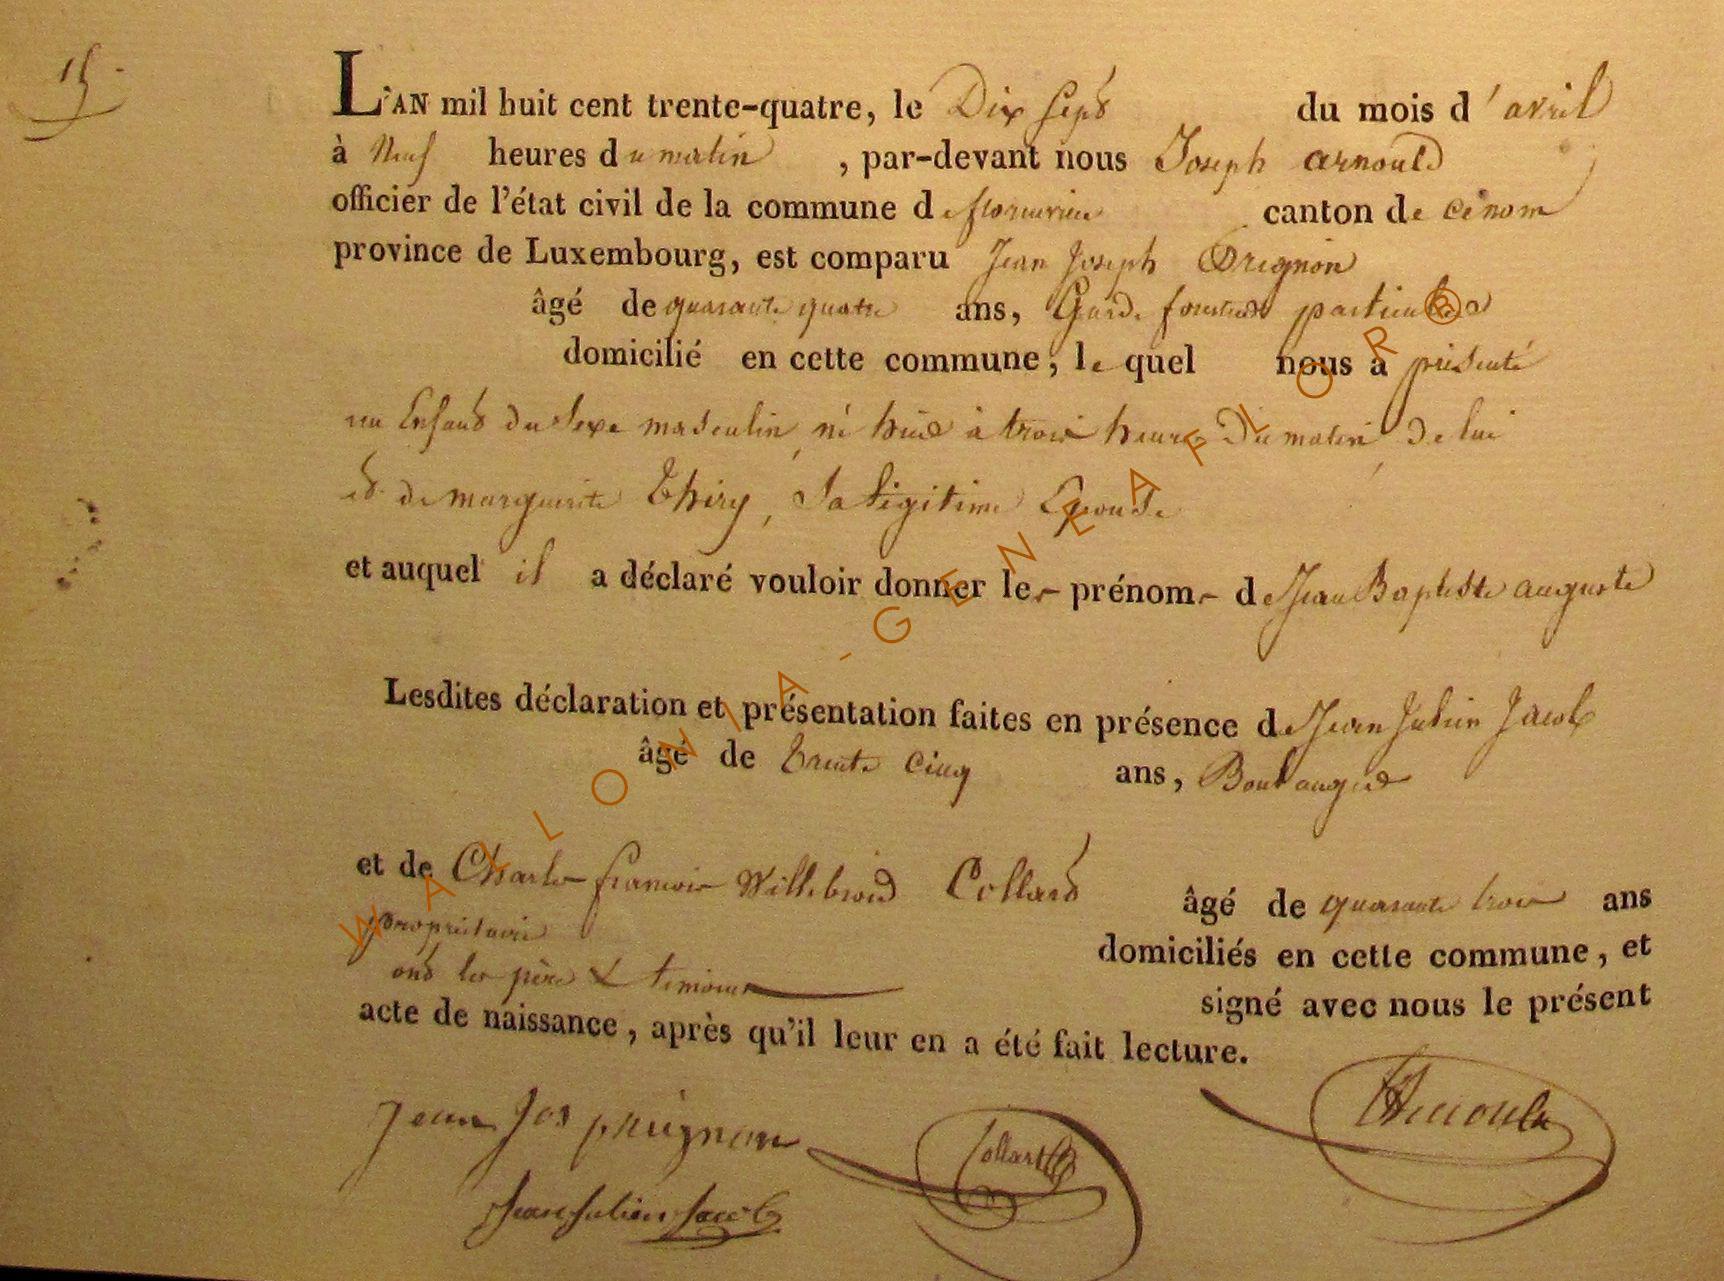 15.
L'AN mil huit cent trente-quatre, le Dix Sept du mois d'avril
à Neuf heures du matin, par-devant nous Joseph arnould
officier de l'état civil de la commune de florenville canton de
province de Luxembourg, est comparu Jean Joseph
âgé de quarante quatre ans, Garde forestier particulier
domicilié en cette commune, lequel nous a présenté
un Enfant du Sexe masculin, né hier à trois heures du matin, de lui
et de marguerite Thiry, Sa légitime Epouse
et auquel il a déclaré vouloir donner les prénoms de Jean Baptiste auguste
Lesdites déclaration et présentation faites en présence de Jean Julien Jacob
âgé de trente cinq ans, Boulanger
et de Charles françois Willebrord Collard âgé de quarante trois ans
propriétaire domiciliés en cette commune, et
ont les père & témoins signé avec nous le présent
acte de naissance, après qu'il leur en a été fait lecture.
Jean Jos Collart Arnould
Jean Julien Jacob
WALLONIA-GENEAFLOR®